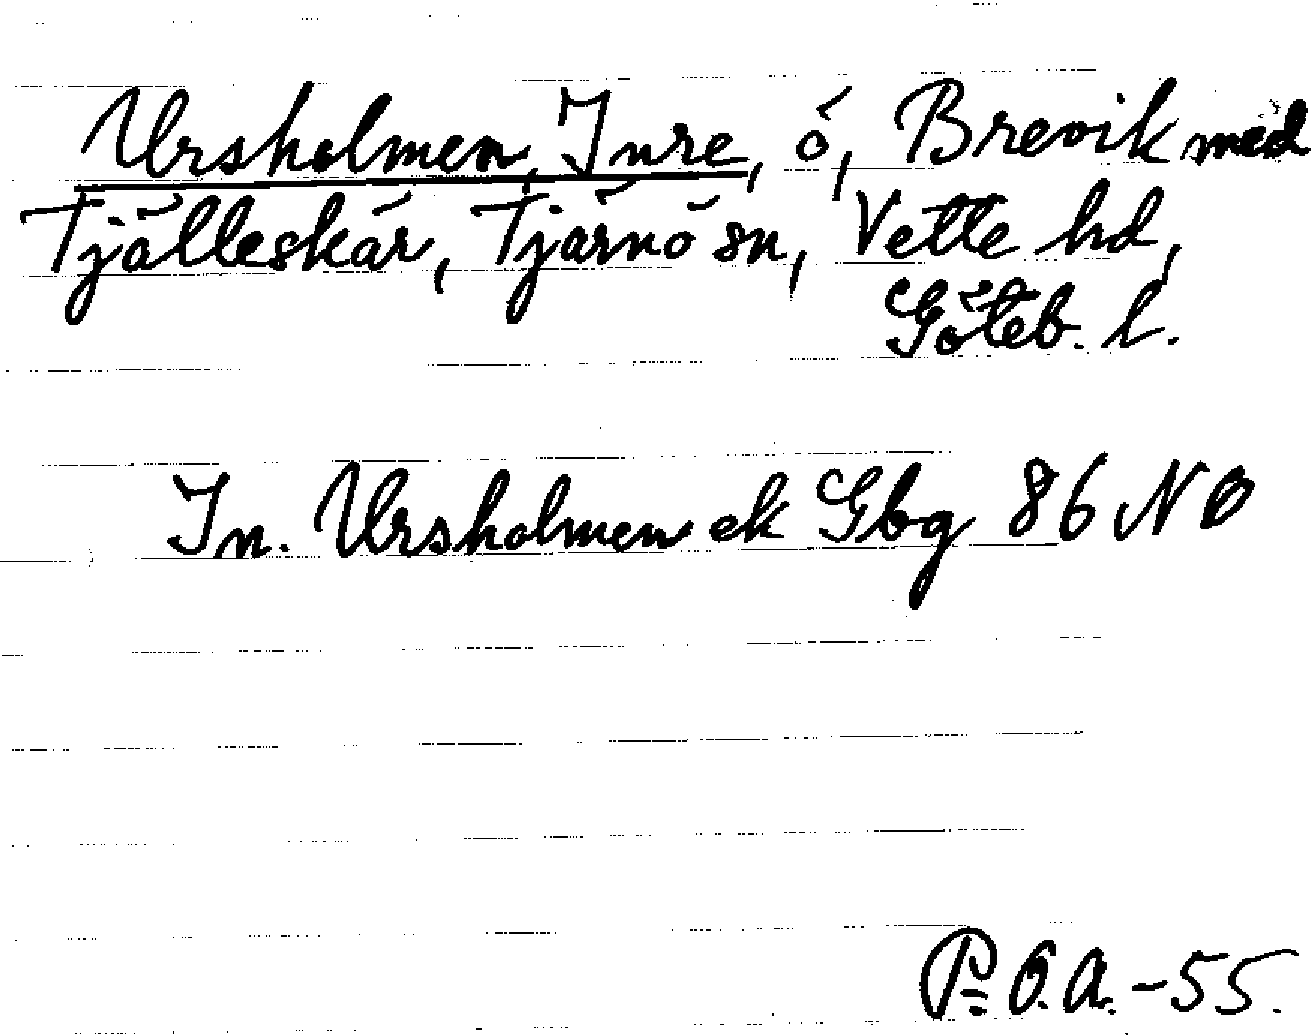 Ursholmen, Inre, ö, Brevik med
Tjälleskär, Tjärnö sn, Vette hd,
Göteb. l.
In. Ursholmen ek Gbg 86 NO
P. O. A. - 55.